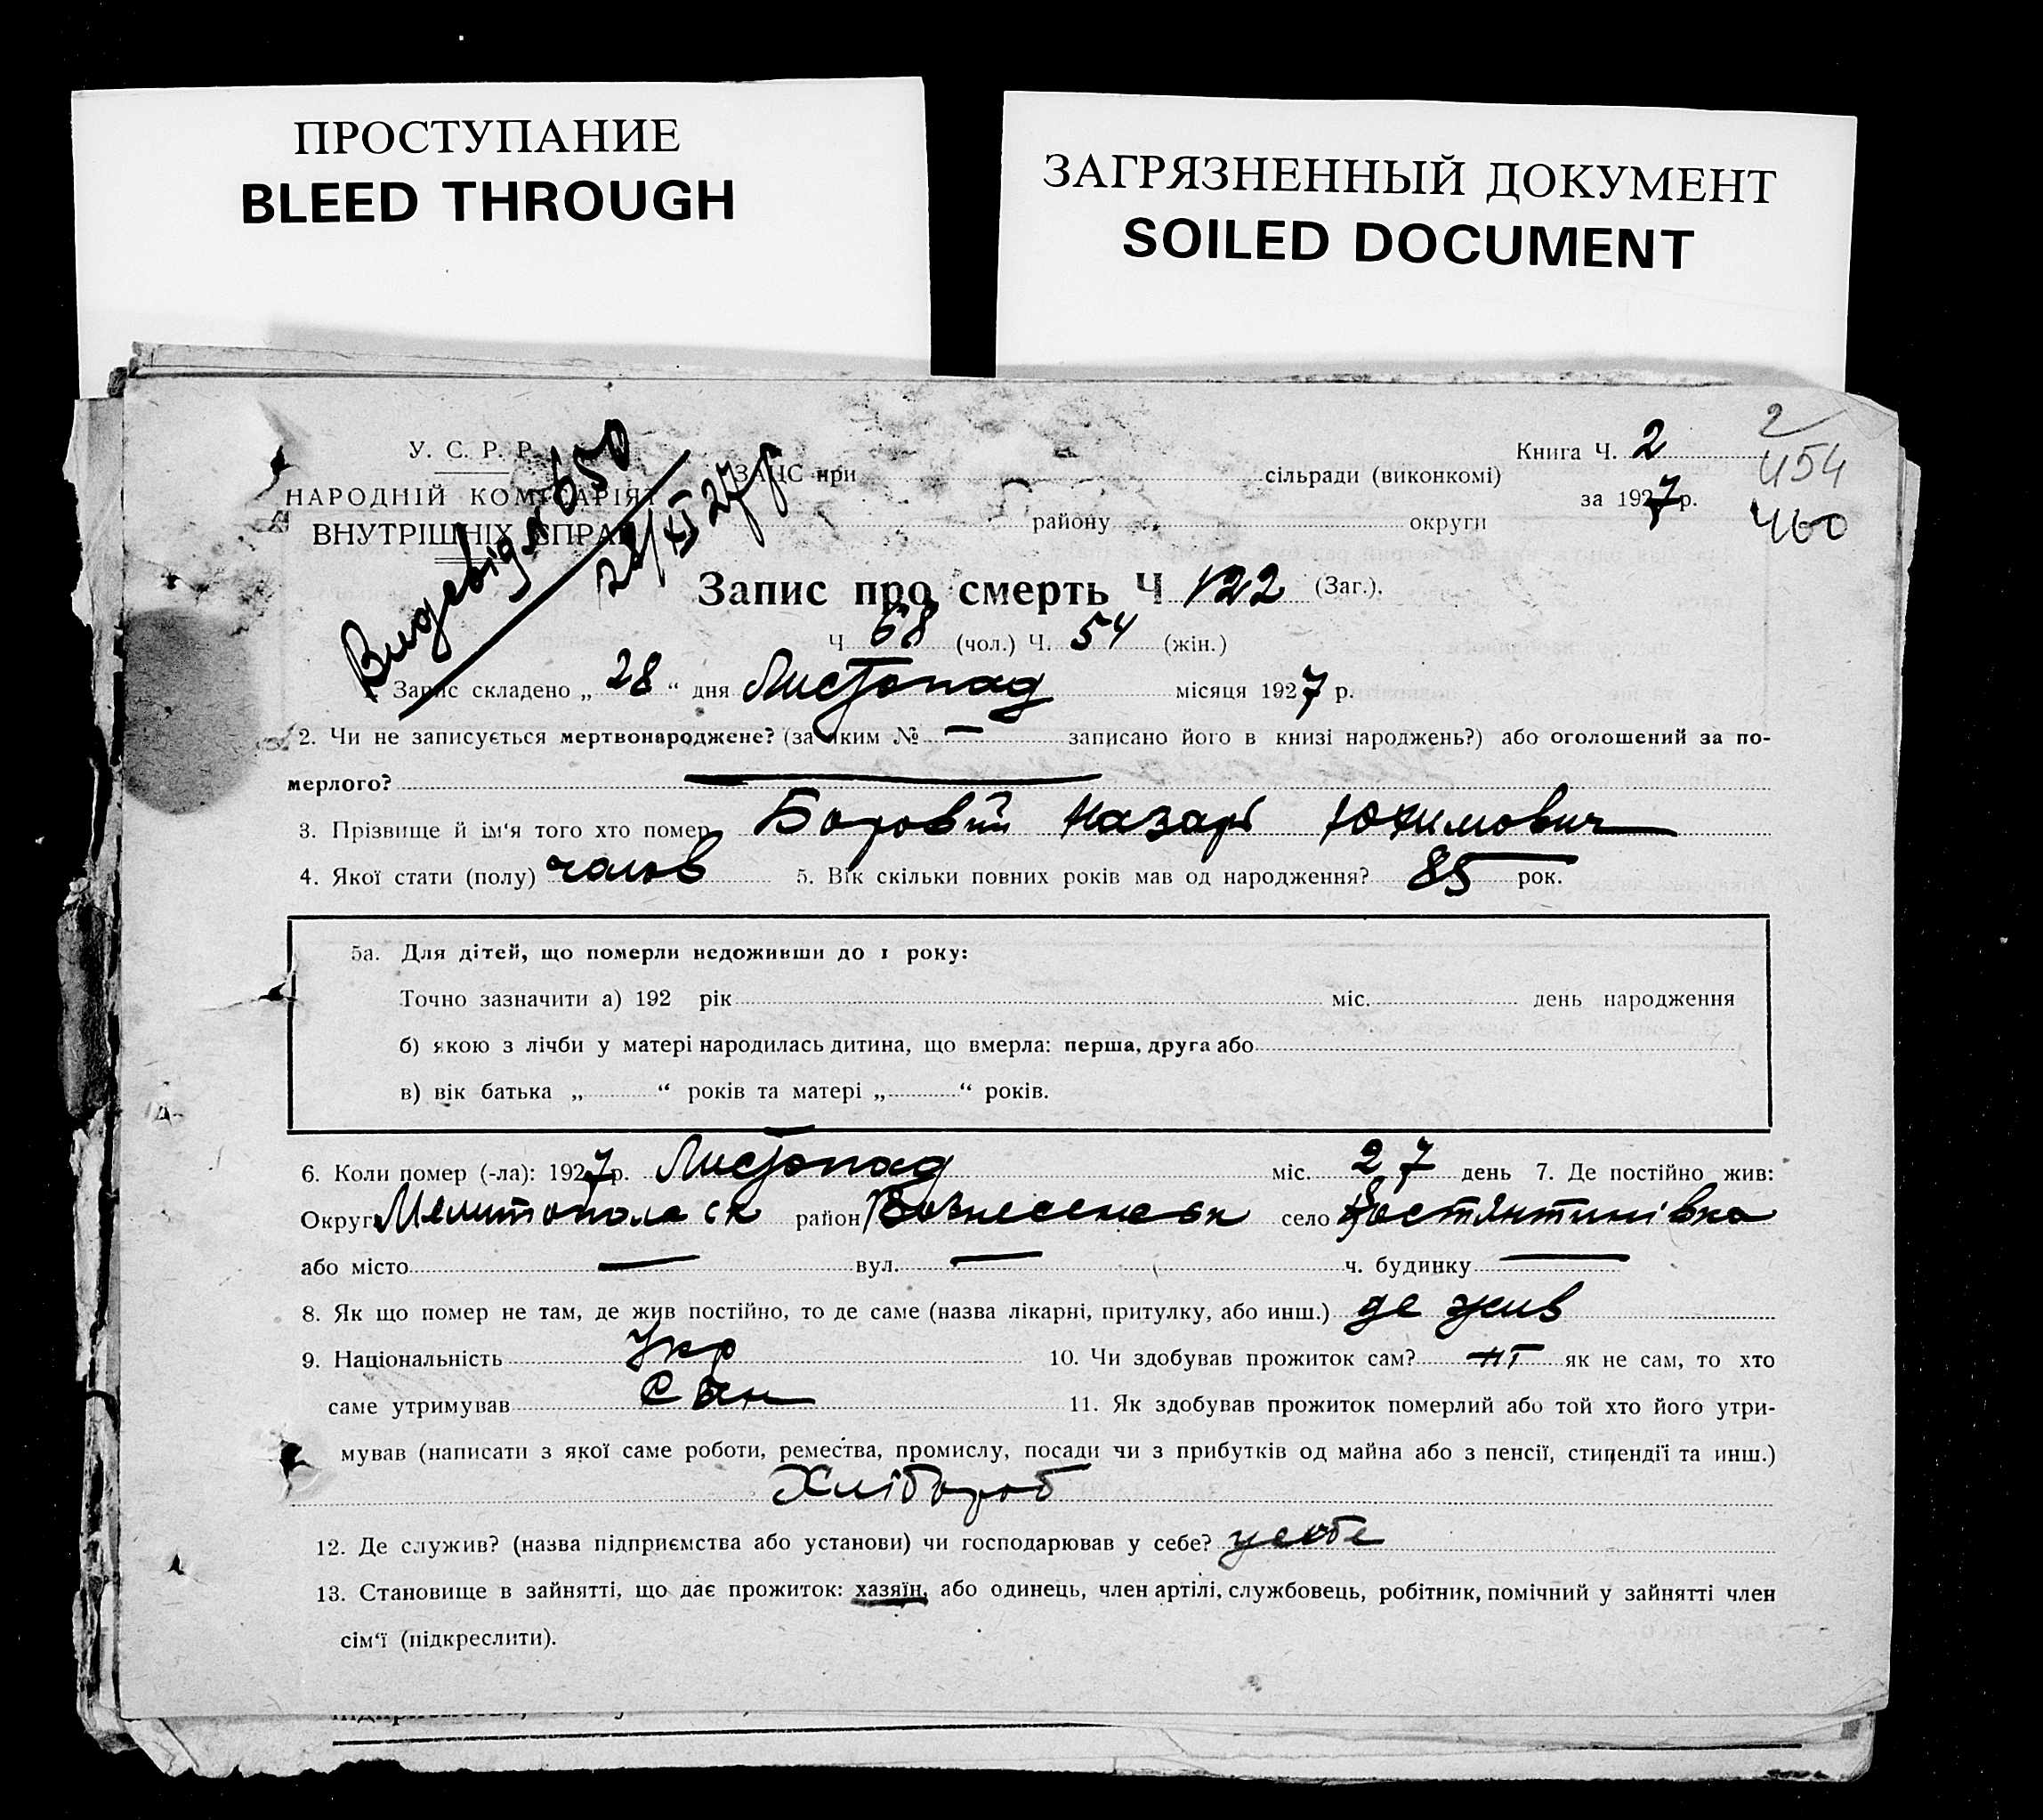 ПРОСТУПАНИЕ
BLEED THROUGH
ЗАГРЯЗНЕННЫЙ ДОКУМЕНТ
SOILED DOCUMENT
У. С. Р. Р.
НАРОДНІЙ КОМІСАРІЯТ
ВНУТРІШНІХ СПРАВ
650
28/XI 27 р
ЗАГС при сільради (виконкомі)
району округи
Книга Ч. 2
за 1927 р.
2
454
460
Запис про смерть Ч 122 (Заг.).
Ч 68 (чол.) Ч. 54 (жін.)
Запис складено „ 28 “ дня Листопад місяця 1927 р.
2. Чи не записується мертвонароджене? (за яким № — записано його в книзі народжень?) або оголошений за по-
мерлого?
3. Прізвище й ім‘я того хто помер Боровий Назарі Юхимович
4. Якої стати (полу) чолов 5. Вік скільки повних років мав од народження? 85 рок.
5а. Для дітей, що померли недоживши до 1 року:
Точно зазначити а) 192 рік міс. день народження
б) якою з лічби у матері народилась дитина, що вмерла: перша, друга або
в) вік батька „ “ років та матері „ “ років.
6. Коли помер (-ла): 1927 р. Листопад міс. 27 день 7. Де постійно жив:
Округ Мелитопольск район Вознесенськ село Костянтинівка
або місто — вул. — ч. будинку —
8. Як що помер не там, де жив постійно, то де саме (назва лікарні, притулку, або инш.) де жив
9. Національність Укр 10. Чи здобував прожиток сам? ні як не сам, то хто
саме утримував Син 11. Як здобував прожиток померлий або той хто його утри-
мував (написати з якої саме роботи, ремества, промислу, посади чи з прибутків од майна або з пенсії, стипендії та инш.)
Хлібороб
12. Де служив? (назва підприємства або установи) чи господарював у себе? у себе
13. Становище в зайнятті, що дає прожиток: хазяїн, або одинець, член артілі, службовець, робітник, помічний у зайнятті член
сім‘ї (підкреслити).